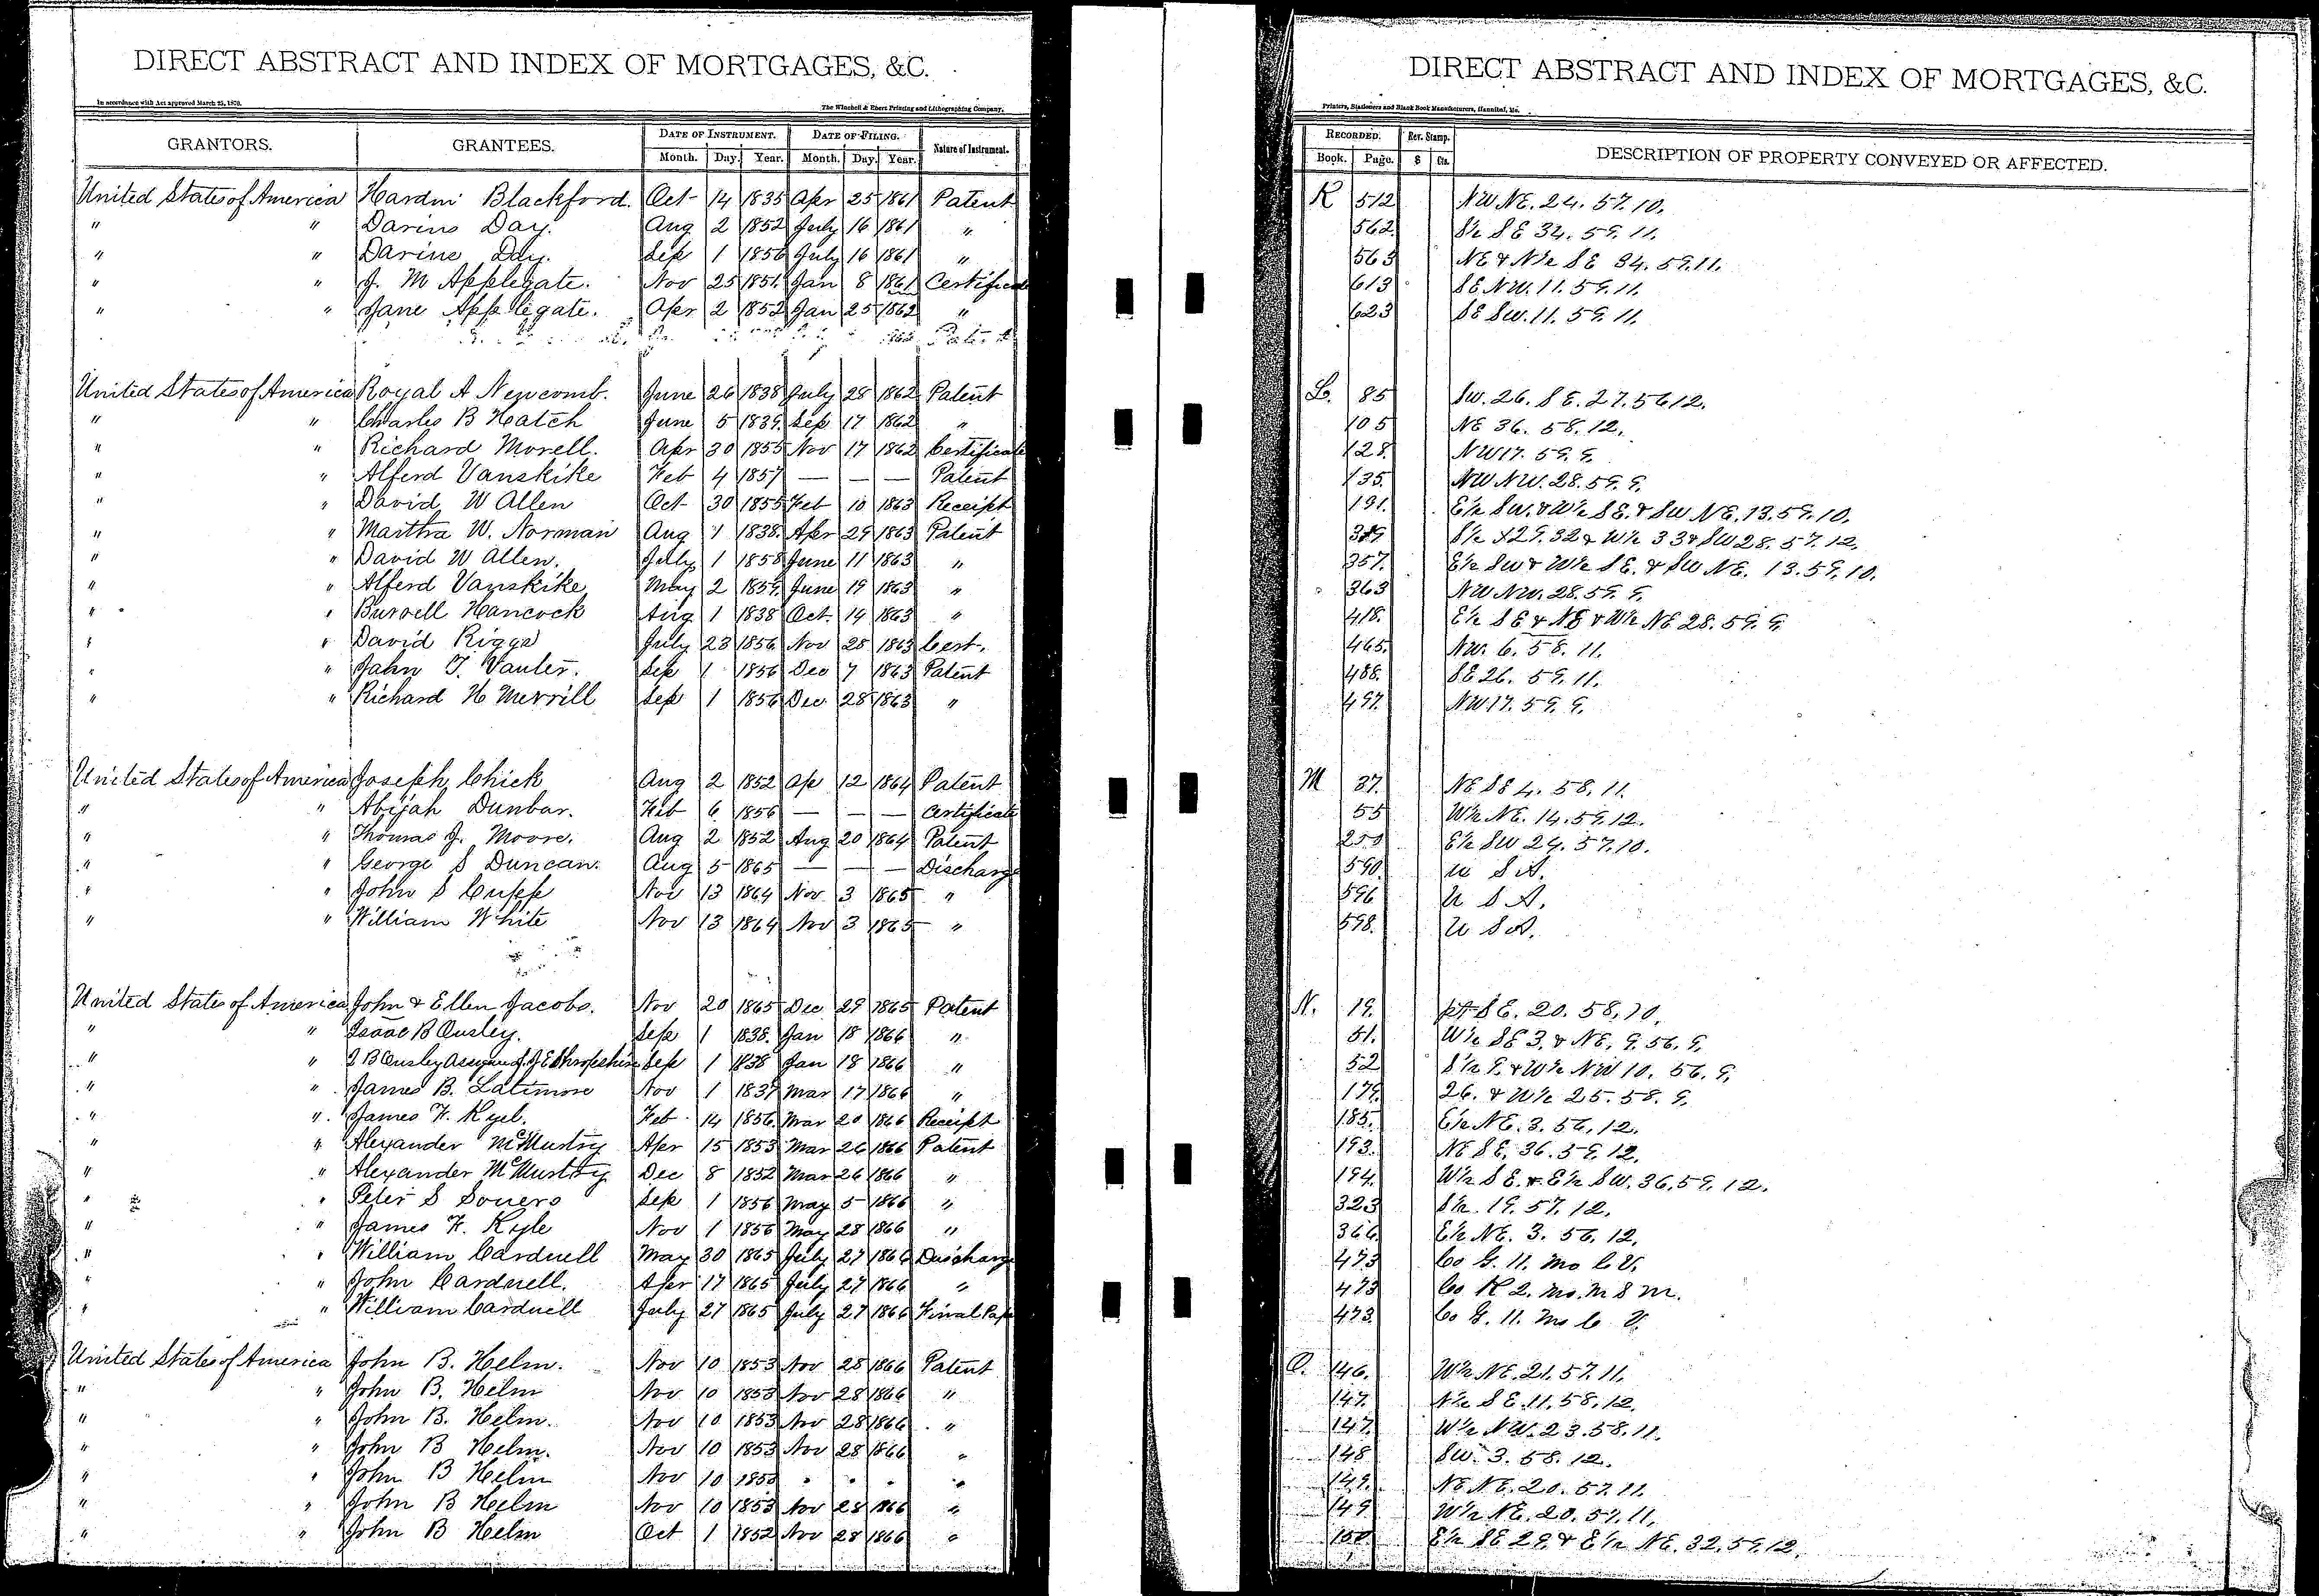 DIRECT ABSTRACT AND INDEX OF MORTGAGES, &C.
In accordance with Act approved March 25, 1870.
The Winchell & Ebert Printing and Lithographing Company.
GRANTORS. GRANTEES. DATE OF INSTRUMENT. DATE OF FILING. Nature of Instrument.
Month. Day. Year. Month. Day. Year.
United States of America Hardin Blackford. Oct 14 1835 Apr 25 1861 Patent
" " Darius Day. Aug 2 1852 July 16 1861 "
" " Darius Day. Sep 1 1856 July 16 1861 "
" " J. M Applegate. Nov 25 1851 Jan 8 1861 Certificate
" " Jane Applegate. Apr 2 1852 Jan 25 1862 "
United States of America Royal A Newcomb. June 26 1838 July 28 1862 Patent
" " Charles B Hatch June 5 1839 Sep 17 1862 "
" " Richard Morell. Apr 30 1855 Nov 17 1862 Certificate
" " Alferd Vanskike Feb 4 1857 — — — Patent
" " David W Allen Oct 30 1855 Feb 10 1863 Receipt
" " Martha W. Norman Aug 1 1838 Apr 29 1863 Patent
" " David W Allen. July 1 1858 June 11 1863 "
" " Alferd Vanskike May 2 1859 June 19 1863 "
" " Burvell Hancock Aug 1 1838 Oct. 14 1863 "
" " David Riggs July 23 1856 Nov 25 1863 Cert.
" " John T. Vauter. Sep 1 1856 Dec 7 1863 Patent
" " Richard H Merrill Sep 1 1856 Dec 28 1863 "
United States of America Joseph Chick Aug 2 1852 Ap 12 1864 Patent
" " Abijah Dunbar. Feb 6 1856 — — — Certificate
" " Thomas J. Moore. Aug 2 1852 Aug 20 1864 Patent
" " George S Duncan. Aug 5 1865 — — — Discharge
" " John S Cupp Nov 13 1864 Nov 3 1865 "
" " William White Nov 13 1864 Nov 3 1865 "
United States of America John & Ellen Jacobs. Nov 20 1865 Dec 29 1865 Patent
" " Isaac B Ousley. Sep 1 1838 Jan 18 1866 "
" " I B Ousley Sep 1 1838 Jan 18 1866 "
" " James B. Latimore Nov 1 1837 Mar 17 1866 "
" " James F. Kyel. Feb 14 1856 Mar 20 1866 Receipt
" " Alexander McMustry Apr 15 1853 Mar 26 1866 Patent
" " Alexander McMustry Dec 8 1852 Mar 26 1866 "
" " Peter S Souers Sep 1 1856 May 5 1866 "
" " James F. Kyle Nov 1 1856 May 28 1866 "
" " William Cardwell May 30 1865 July 27 1866 Discharge
" " John Cardwell. Apr 17 1865 July 27 1866 "
" " William Cardwell July 27 1865 July 27 1866 Final Pap
United States of America John B. Helm. Nov 10 1853 Nov 28 1866 Patent
" " John B. Helm Nov 10 1853 Nov 28 1866 "
" " John B. Helm. Nov 10 1853 Nov 28 1866 "
" " John B Helm. Nov 10 1853 Nov 28 1866 "
" " John B Helm Nov 10 1853 " " " "
" " John B Helm Nov 10 1853 Nov 28 1866 "
" " John B Helm Oct 1 1852 Nov 28 1866 "
DIRECT ABSTRACT AND INDEX OF MORTGAGES, &C.
Printers, Stationers and Blank Book Manufacturers, Hannibal, Mo.
RECORDED. Rev. Stamp. DESCRIPTION OF PROPERTY CONVEYED OR AFFECTED.
Book. Page. $ Cts.
K 512 NW NE. 24. 57. 10.
562 S½ SE 34. 59. 11.
563 NE & N½ SE 34. 59. 11.
613 SE NW. 11. 59. 11.
623 SE SW. 11. 59. 11.
L. 85 SW. 26. SE. 27. 56 12.
105 NE 36. 58. 12.
128. NW 17. 59. 9.
135. NW NW. 28. 59. 9.
191. E½ SW. & W½ SE. & SW NE. 13. 59. 10.
S½ 29. 32 & W½ 33 & SW 28. 57. 12.
357. E½ SW & W½ SE. & SW NE. 13. 59. 10.
363 NW NW. 28. 59. 9.
418. E½ SE & NE & W½ NE 28. 59. 9.
465. NW. 6. 58. 11.
488. SE 26. 59. 11.
497. NW 17. 59. 9.
M 37. NE SE 4. 58. 11.
55 W½ NE. 14. 59. 12.
250 E½ SW 24. 57. 10.
590 U S A.
596 U S A.
598. U S A.
N. 19. pt SE. 20. 58. 10.
51. W½ SE 3. & NE. 9. 56. 9.
52 S½ 9. & W½ NW 10. 56. 9.
179. 26. & W½ 25. 58. 9.
185. E½ NE. 3. 56. 12.
193. NE SE. 36. 59. 12.
194. W½ SE. & E½ SW. 36. 59. 12.
323 S½. 19. 57. 12.
366. E½ NE. 3. 56. 12.
473 Co G. 11. Mo C V.
473 Co H 2. Mo. M S M.
473. Co G. 11. Mo C V.
O. 146. W½ NE. 21. 57. 11.
147. N½ SE. 11. 58. 12.
147. W½ NW. 23. 58. 11.
148 SW. 3. 58. 12.
149. NE NE. 20. 57. 11.
149 W½ NE. 20. 57. 11.
150. E½ SE 29. & E½ NE. 32. 59. 12.